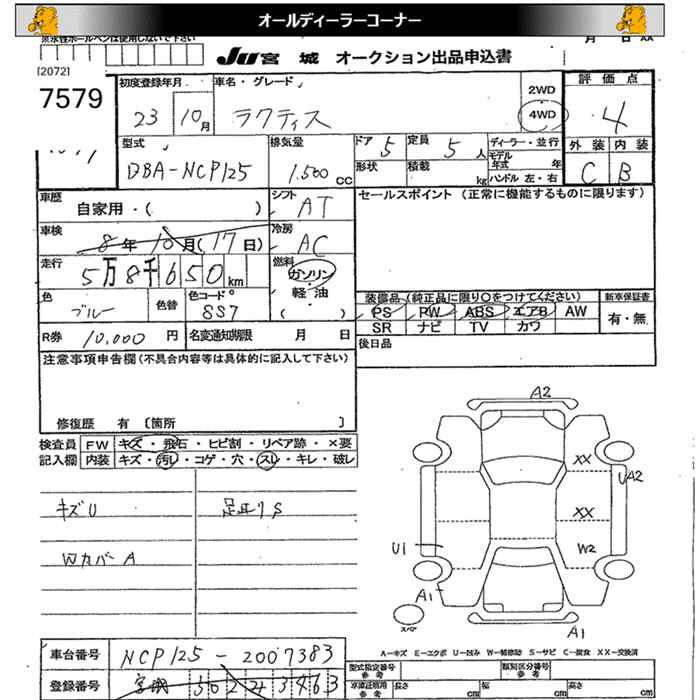 オールディーラーコーナー
Ju 宮城 オークション出品申込書
[2072]
7579
初度登録年月 車名・グレード 2WD 評価点
23 10月 ラクティス 4WD 4
型式 排気量 ドア 定員 ディーラー・並行 外装 内装
DBA-NCP125 1.500cc 5 5人 モデル年式 年 C B
形状 積載 kg ハンドル 左・右
車歴 自家用・( ) シフト AT セールスポイント (正常に機能するものに限ります)
車検 8年10月(17日) 冷房 AC
走行 5万8千650km 燃料 ガソリン・軽油 ( )
色 ブルー 色替 色コード 8S7
装備品(純正品に限り○をつけてください) 新車保証書
PS PW ABS エアB AW 有・無
SR ナビ TV カワ
R券 10,000円 名変通知期限 月 日 後日品
注意事項申告欄(不具合内容等は具体的に記入して下さい)
修復歴 有 〔箇所 〕
検査員 FW キズ・飛石・ヒビ割・リペア跡・×要
記入欄 内装 キズ・汚レ・コゲ・穴・スレ・キレ・破レ
キズU
Wカバー A
A2
XX
UA2
XX
U1
W2
A1
A1
スペア
A-キズ E-エクボ U-凹み W-補修跡 S-サビ C-腐食 XX-交換済
車台番号 NCP125-2007383
登録番号 宮城 3463
型式指定番号 参考 類別区分番号 参考
車庫証明用 参考 長さ cm 幅 cm 高さ cm